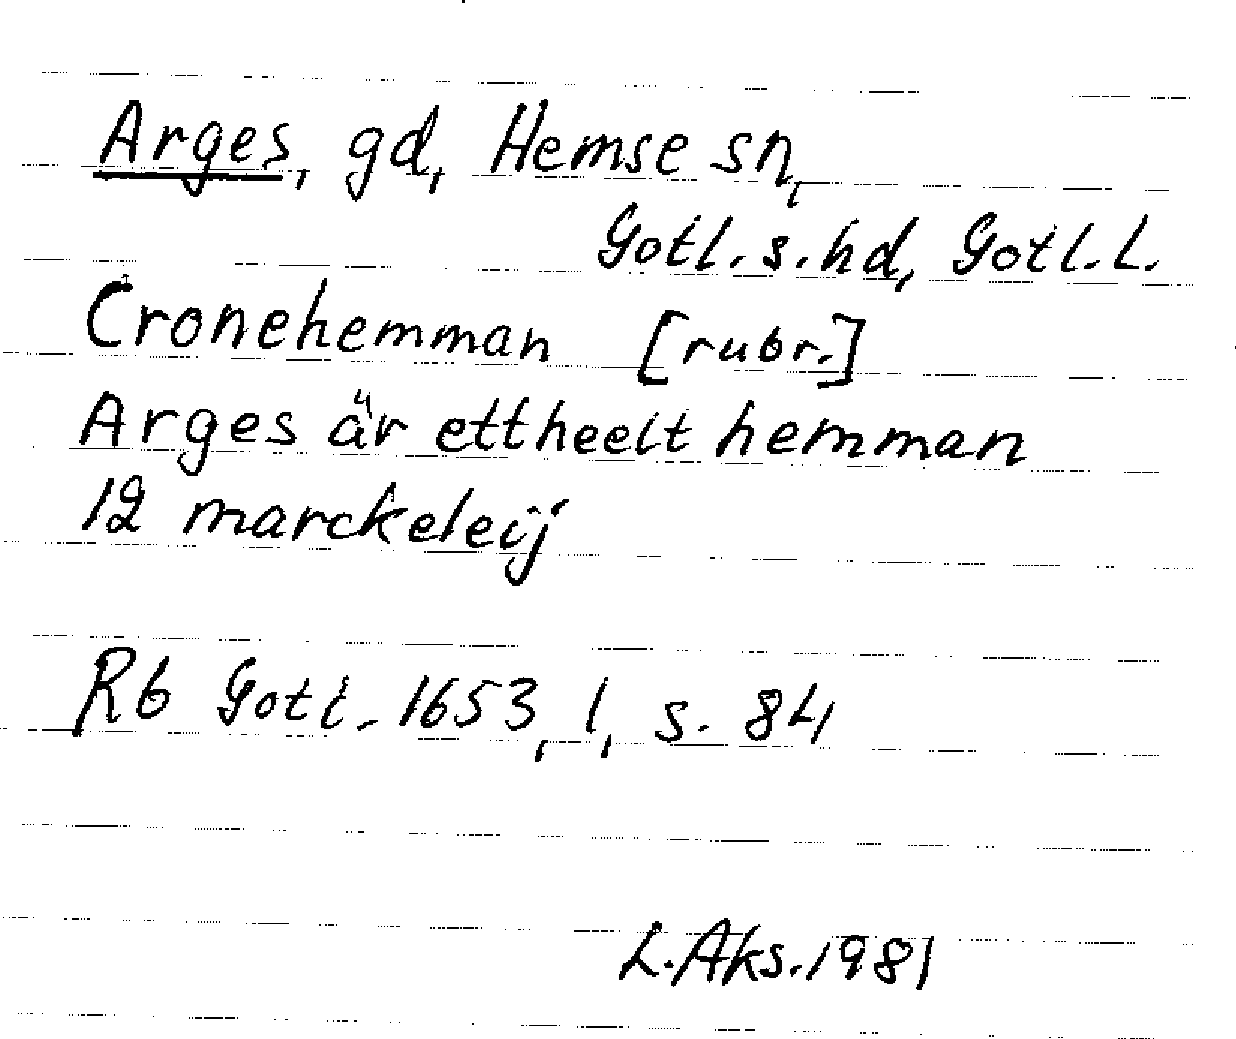 Arges, gd, Hemse sn,
Gotl. s. hd, Gotl. L.
Cronehemman [rubr.]
Arges är ett heelt hemman
12 marckeleij
Rb Gotl. 1653, 1, s. 84
L. Aks. 1981